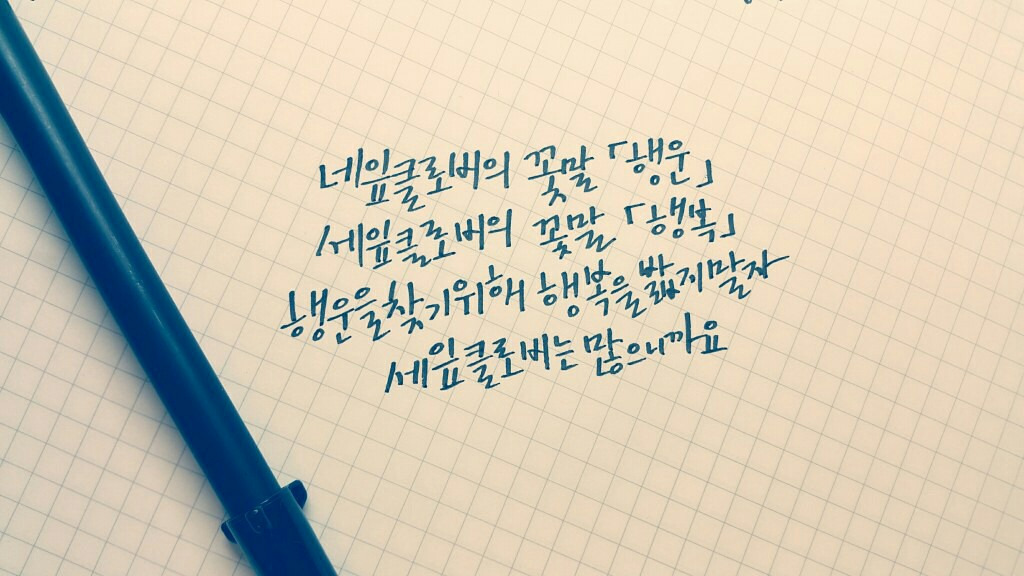 네잎클로버의 꽃말 「행운」
세잎클로버의 꽃말 「행복」
행운을찾기위해 행복을밟지말자
세잎클로버는많으니까요